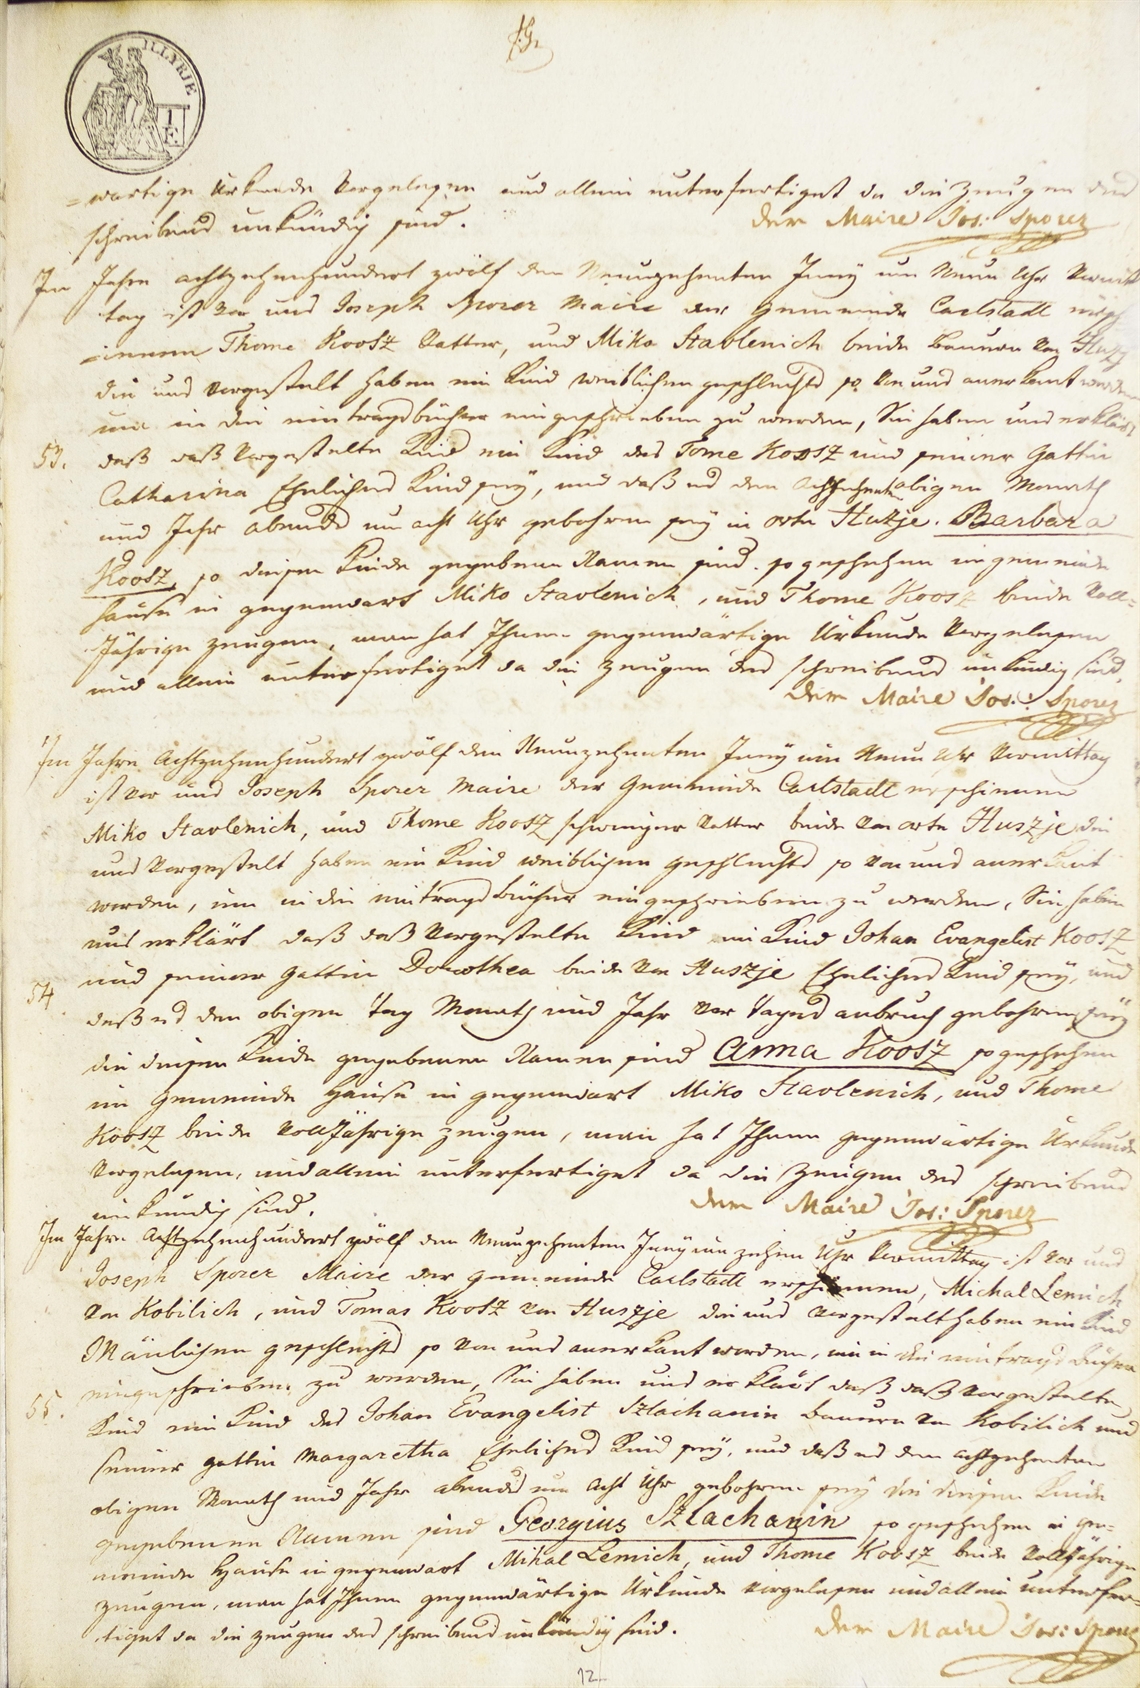 ILLYRIE
wärtige Urkunde Vorgelesen und allein unterfertiget da die Zeugen des
schreibens unkündig sind.
der Maire Jos: Sporer
Im Jahre achtzehnhundert zwölf den Neunzehenten Juny um Neun Uhr Vormit
tag ist vor uns Joseph Sporer Maire der Gemeinde Carlstadt ersch
=ienen Thome Koosz Vatter, und Miko Stavlenich beide Bauern von
die uns Vorgestelt haben ein Kind weiblichen geschlechts so von uns anerkant worden
um in die eintragsbücher eingeschrieben zu werden, Sie haben uns erklärt
53. daß daß Vorgestelte Kind ein Kind des Tome Koosz und seiner Gattin
Catharina Ehelisches Kind seÿ, und daß es den Achzehenten obigen Monath
und Jahr abends um acht Uhr gebohren seÿ in orte Huszje. Barbara
Koosz, so diesen Kinde gegebene Namen sind. so geschehen im gemeinde
hause in gegenwart Miko Stavlenich, und Thome Koosz beide Voll=
Jährige zeugen, man hat Ihnen gegenwärtige Urkunde Vorgelesen
und allein unterfertiget da die zeugen des schreibens unkündig sind.
der Maire Jos: Sporer
Im Jahre Achtzehenhundert zwölf den Neunzehenten Juny um Neun Uhr Vormittag
ist vor uns Joseph Sporer Maire der Gemeinde Carlstadt erschienen
Miko Stavlenich, und Thome Koosz Vatter beide von orte Huszje die
uns Vorgestelt haben ein Kind weiblichen geschlechts so von uns anerkant
worden, um in die eintragsbücher eingeschrieben zu werden, Sie haben
uns erklärt daß daß Vorgestelte Kind ein Kind Johan Evangelist Koosz
54. und seiner gattin Dorothea beide von Huszje Ehelisches Kind seÿ, und
daß es den obigen Tag Monath und Jahr vor Tages anbruch gebohren seÿ
die diesen Kinde gegebenen Namen sind Anna Koosz so geschehen
im Gemeinde Hause in gegenwart Miko Stavlenich, und Thome
Koosz beide VollJährige zeugen, man hat Ihnen gegenwärtige Urkunde
Vorgelesen, und allein unterfertiget da die Zeugen des schreibens
unkündig sind.
der Maire Jos: Sporer
Im Jahre Achtzehenhundert zwölf den Neunzehenten Juny um zehen Uhr Vormittag ist vor uns
Joseph Sporer Maire der gemeinde Carlstadt erschienen, Michal Lemich
von Kobilich, und Tomas Koosz von Huszje die uns Vorgestelt haben ein Kind
Mänlichen geschlechts so von uns anerkant worden, um in die eintrags Bücher
eingeschrieben zu werden, Sie haben uns erklärt daß daß Vorgestelte
55. Kind ein Kind des Johan Evangelist Szlachanin Bauern von Kobilich und
seiner gattin Margaretha Ehelisches Kind seÿ, und daß es den achtzehenten
obigen Monath und Jahr abends um Acht Uhr gebohren seÿ die diesen Kinde
gegebenen Namen sind Georgius Szlachanin so geschehen in ge=
meinde Hause in gegenwart Mihal Lemich, und Thome Koosz beide Volljährige
zeugen, man hat Ihnen gegenwärtige Urkunde vorgelesen und allein unterfer=
tiget da die zeugen des schreibens unkündig sind.
der Maire Jos: Sporer
12